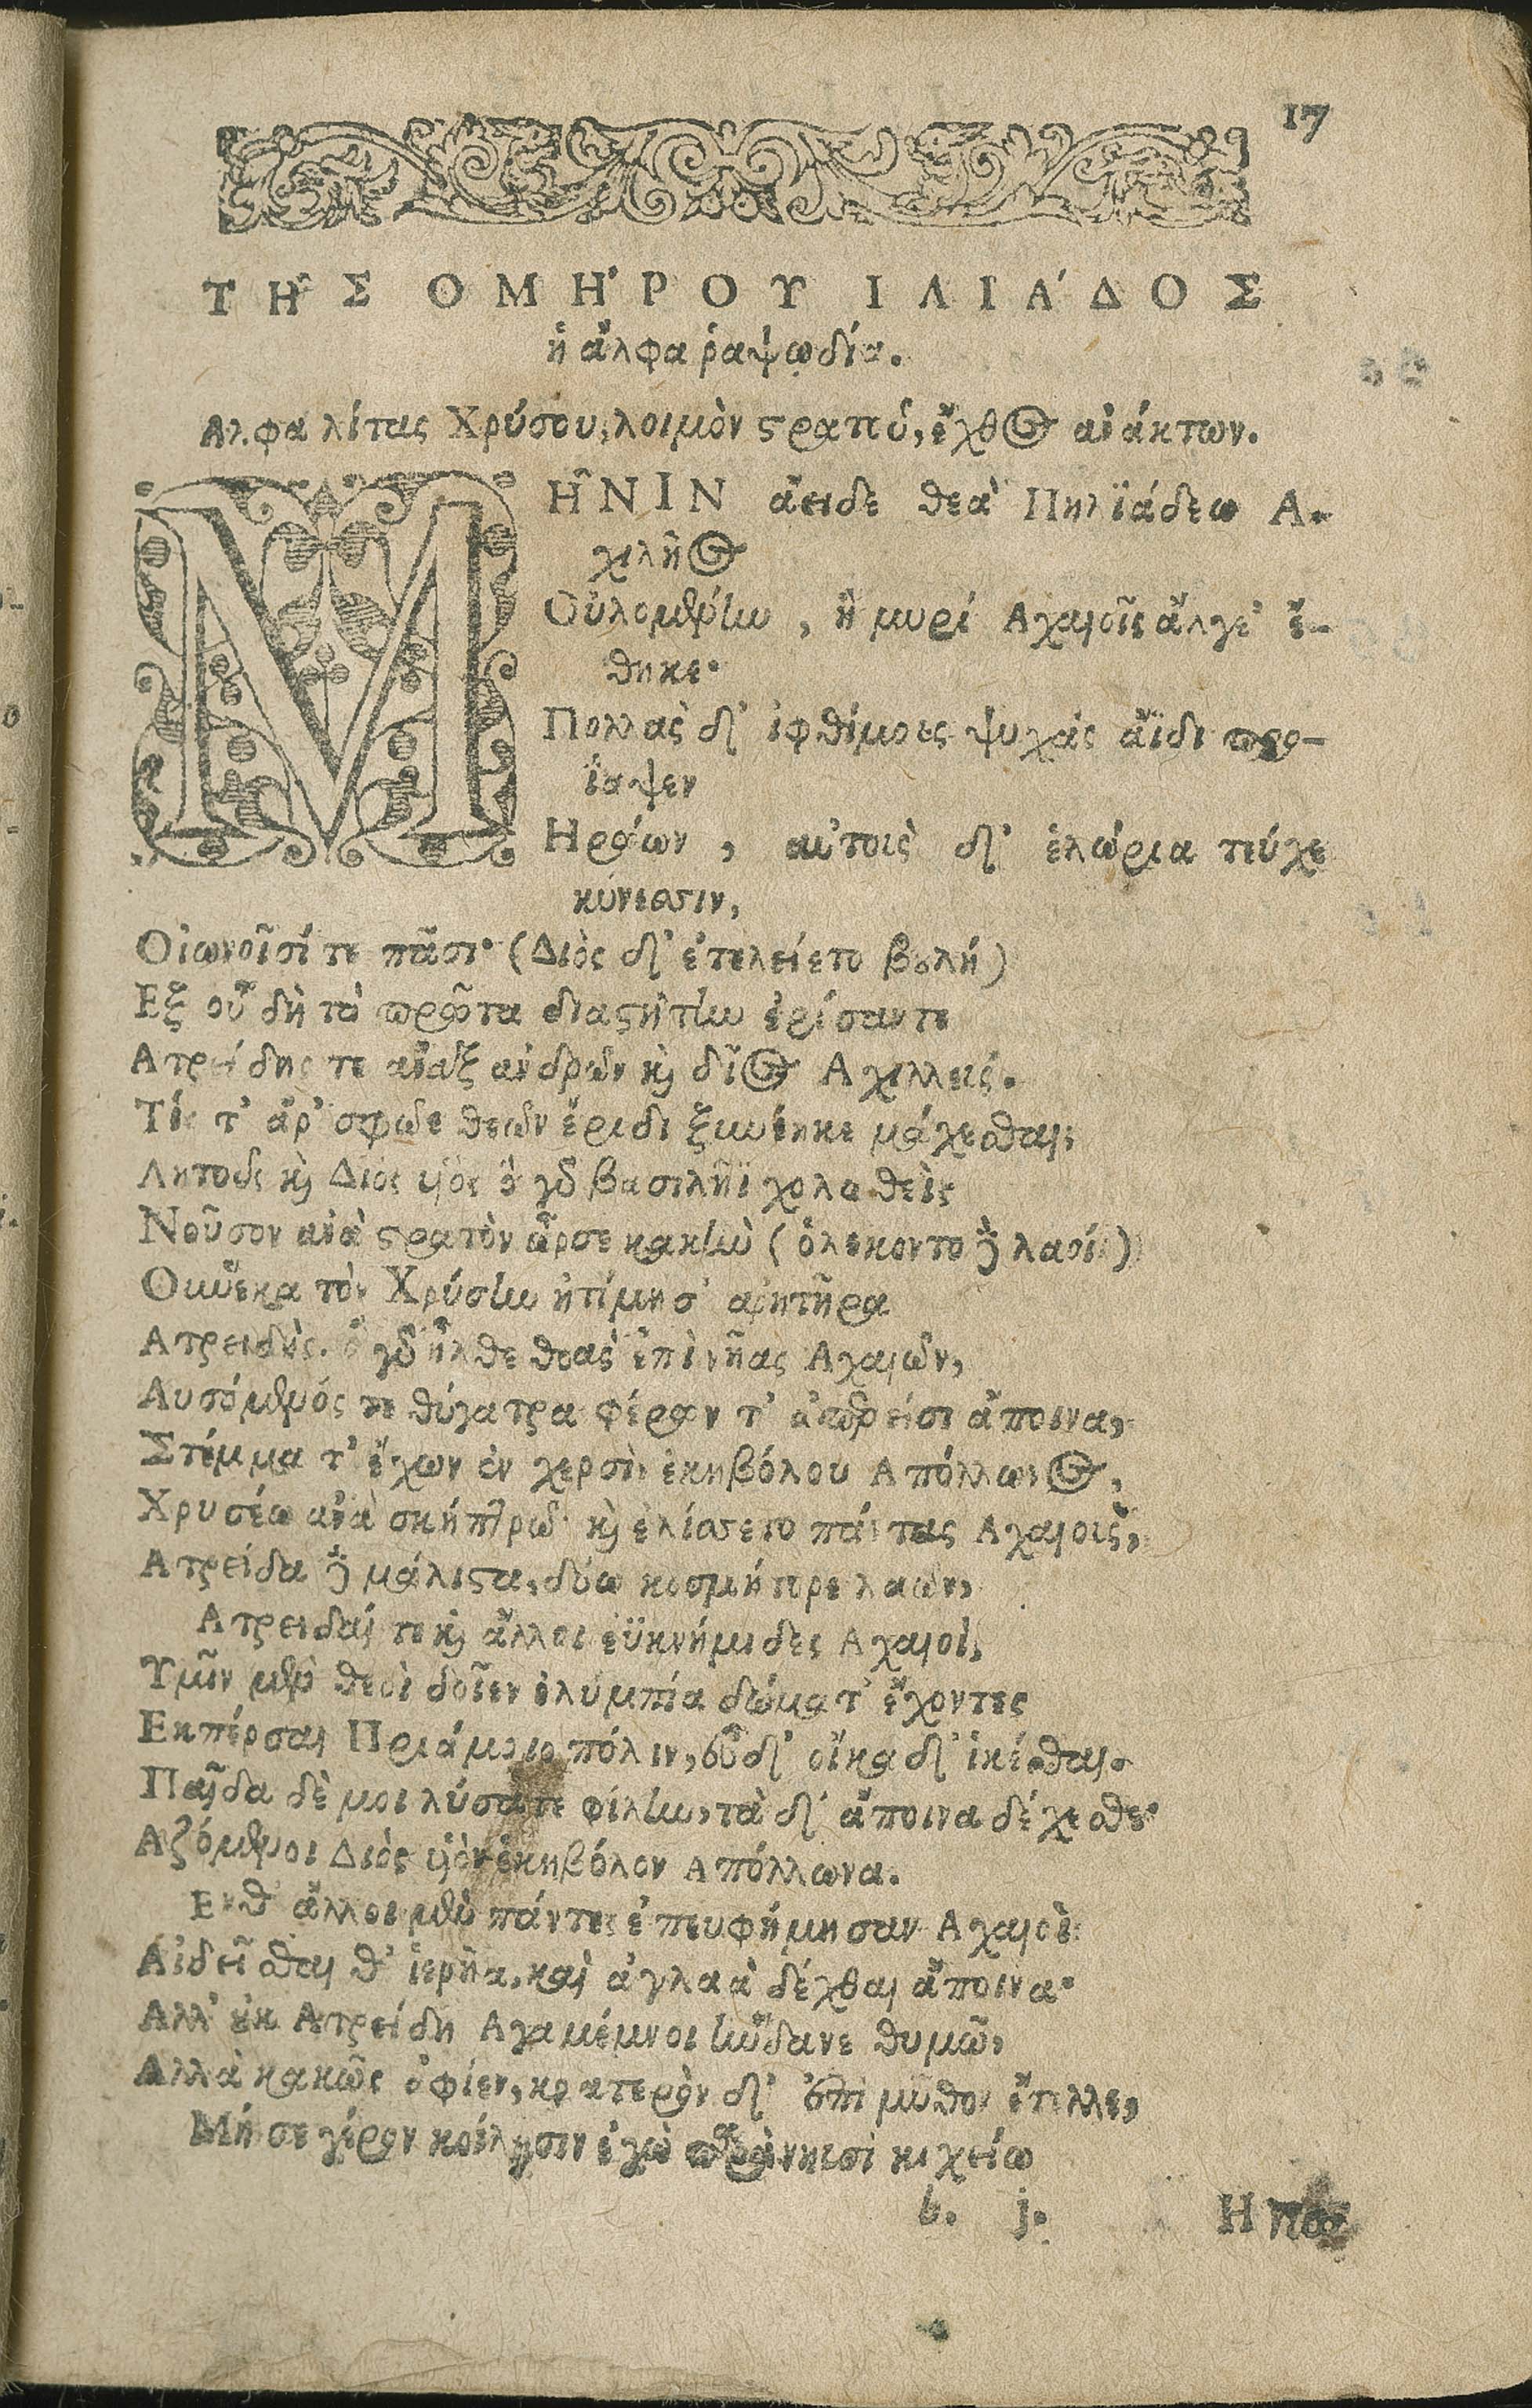 17
ΤΗ͂Σ ΟΜΉΡΟΥ ΙΛΙΆΔΟΣ
ἡ ἄλφα ῥαψῳδία.
Αλφα λίτας Χρύσου, λοιμὸν ϛρατοῦ, ἔχθος ἀνάκτων.
ΜΗ͂ΝΙΝ ἄειδε θεὰ Πηληϊάδεω Α-
χιλῆος
Οὐλομένην, ἣ μυρί Αχαιοῖς ἄλγε' ἔ-
θηκε·
Πολλὰς δ' ἰφθίμους ψυχὰς ἄϊδι προ-
ΐαψεν
Ηρώων, αὐτοὺς δ' ἑλώρια τεύχε
κύνεσσιν,
Οἰωνοῖσί τε πᾶσι· (Διὸς δ' ἐτελείετο βουλή)
Εξ οὗ δὴ τὰ πρῶτα διαϛήτην ἐρίσαντε
Ατρείδης τε ἄναξ ἀνδρῶν καὶ δῖος Αχιλλεύς.
Τίς τ' ἄρ' σφωε θεῶν ἔριδι ξυνέηκε μάχεσθαι;
Λητοῦς καὶ Διὸς υἱός· ὁ γὰρ βασιλῆϊ χολωθεὶς
Νοῦσον ἀνὰ ϛρατὸν ὦρσε κακὴν (ὀλέκοντο δὲ λαοί)
Οὕνεκα τὸν Χρύσην ἠτίμησ' ἀρητῆρα
Ατρείδης. ὁ γὰρ ἦλθε θοὰς ἐπὶ νῆας Αχαιῶν,
Λυσόμενός τε θύγατρα φέρων τ' ἀπερείσι ἄποινα,
Στέμμα τ' ἔχων ἐν χερσὶν ἑκηβόλου Απόλλωνος,
Χρυσέῳ ἀνὰ σκήπτρῳ· καὶ ἐλίσσετο πάντας Αχαιοὺς,
Ατρείδα δὲ μάλιϛα, δύω κοσμήτορε λαῶν,
Ατρειδαί τε καὶ ἄλλοι ἐϋκνήμιδες Αχαιοὶ,
Υμῖν μὲν θεοὶ δοῖεν ὀλύμπια δώματ' ἔχοντες
Εκπέρσαι Πριάμοιο πόλιν, εὖ δ' οἴκαδ' ἱκέσθαι.
Παῖδα δὲ μοι λύσατε φίλην, τὰ δ' ἄποινα δέχεσθε·
Αζόμενοι Διὸς υἱὸν ἑκηβόλον Απόλλωνα.
Ενθ' ἄλλοι μὲν πάντες ἐπευφήμησαν Αχαιοὶ
Αἰδεῖσθαι θ' ἱερῆα, καὶ ἀγλαὰ δέχθαι ἄποινα·
Αλλ' οὐκ Ατρείδῃ Αγαμέμνοι ἥνδανε θυμῷ,
Αλλὰ κακῶς ἀφίει, κρατερὸν δ' ἐπὶ μῦθον ἔτελλε,
Μή σε γέρον κοίλῃσιν ἐγὼ παρὰ νηυσὶ κιχείω
b. j. Η